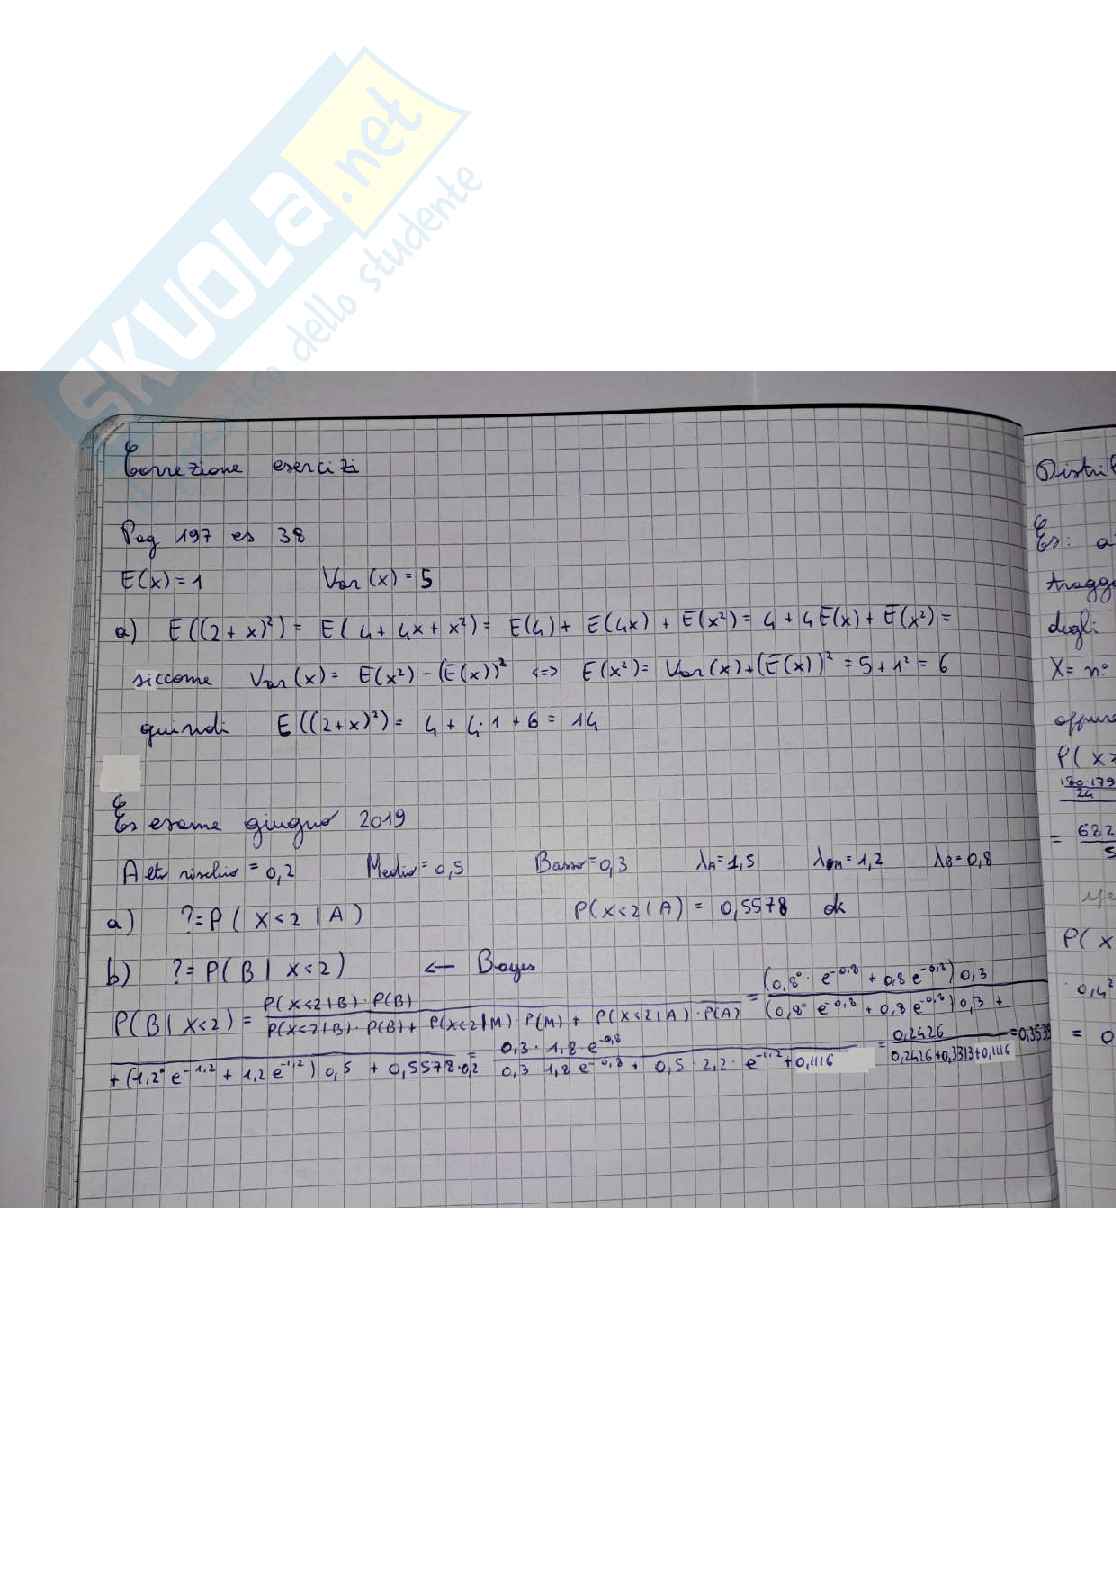 SKUOLA.net
dello studente
Correzione esercizi
Pag 197 es 38
E(x)=1 Var(x)=5
a) E((2+x)²)= E(4+4x+x²)= E(4)+ E(4x)+E(x²)= 4+4E(x)+E(x²)=
siccome Var(x)= E(x²)-(E(x))² <=> E(x²)= Var(x)+(E(x))²=5+1²=6
quindi E((2+x)²)= 4+4·1+6= 14
Es esame giugno 2019
Alto rischio=0,2 Medio=0,5 Basso=0,3 λA=1,5 λM=1,2 λB=0,8
a) ?=P(X<2|A) P(X<2|A)= 0,5578 ok
b) ?=P(B|X<2) <— Bayes
P(B|X<2)= P(X<2|B)·P(B) / P(X<2|B)·P(B)+P(X<2|M)·P(M)+P(X<2|A)·P(A) = (0,8⁰·e^-0,8+0,8e^-0,8)0,3 / (0,8⁰e^-0,8+0,8e^-0,8)0,3+
+(1,2⁰e^-1,2+1,2e^-1,2)0,5+0,5578·0,2 = 0,3·1,8·e^-0,8 / 0,3 1,8e^-0,8+0,5·2,2·e^-1,2+0,1116 = 0,2426 / 0,2426+0,3313+0,1116 =0,3539
Distrib
Es: a
degli
X= n°
P(X
24
622
5
=
P(X
0,4²
= 0